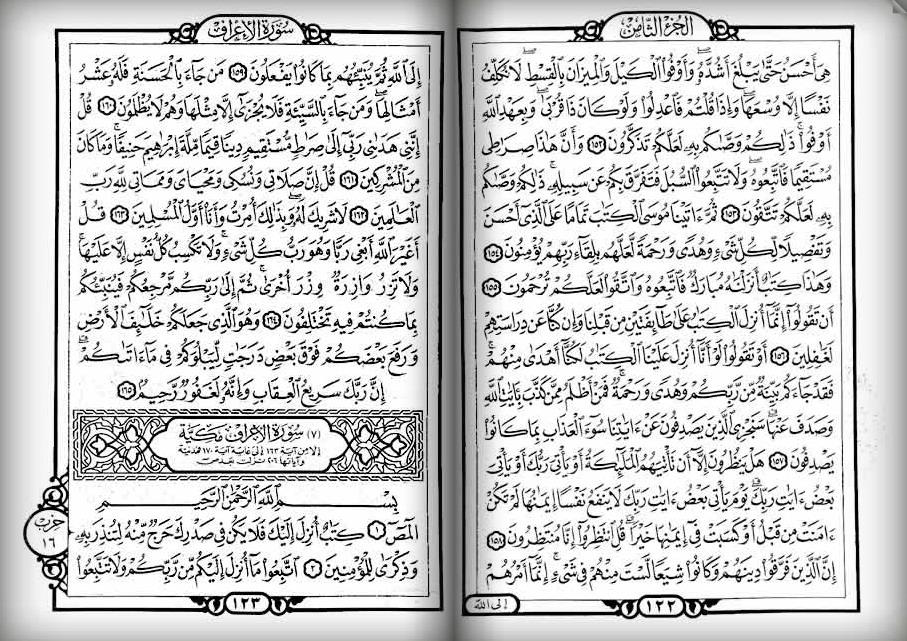 الجزء الثامن
هِىَ أَحْسَنُ حَتَّىٰ يَبْلُغَ أَشُدَّهُۥ وَأَوْفُوا۟ ٱلْكَيْلَ وَٱلْمِيزَانَ بِٱلْقِسْطِ لَا نُكَلِّفُ
نَفْسًا إِلَّا وُسْعَهَا وَإِذَا قُلْتُمْ فَٱعْدِلُوا۟ وَلَوْ كَانَ ذَا قُرْبَىٰ وَبِعَهْدِ ٱللَّهِ
أَوْفُوا۟ ذَٰلِكُمْ وَصَّىٰكُم بِهِۦ لَعَلَّكُمْ تَذَكَّرُونَ ١٥٢ وَأَنَّ هَٰذَا صِرَٰطِى
مُسْتَقِيمًا فَٱتَّبِعُوهُ وَلَا تَتَّبِعُوا۟ ٱلسُّبُلَ فَتَفَرَّقَ بِكُمْ عَن سَبِيلِهِۦ ذَٰلِكُمْ وَصَّىٰكُم
بِهِۦ لَعَلَّكُمْ تَتَّقُونَ ١٥٣ ثُمَّ ءَاتَيْنَا مُوسَى ٱلْكِتَٰبَ تَمَامًا عَلَى ٱلَّذِىٓ أَحْسَنَ
وَتَفْصِيلًا لِّكُلِّ شَىْءٍ وَهُدًى وَرَحْمَةً لَّعَلَّهُم بِلِقَآءِ رَبِّهِمْ يُؤْمِنُونَ ١٥٤
وَهَٰذَا كِتَٰبٌ أَنزَلْنَٰهُ مُبَارَكٌ فَٱتَّبِعُوهُ وَٱتَّقُوا۟ لَعَلَّكُمْ تُرْحَمُونَ ١٥٥
أَن تَقُولُوٓا۟ إِنَّمَآ أُنزِلَ ٱلْكِتَٰبُ عَلَىٰ طَآئِفَتَيْنِ مِن قَبْلِنَا وَإِن كُنَّا عَن دِرَاسَتِهِمْ
لَغَٰفِلِينَ ١٥٦ أَوْ تَقُولُوا۟ لَوْ أَنَّآ أُنزِلَ عَلَيْنَا ٱلْكِتَٰبُ لَكُنَّآ أَهْدَىٰ مِنْهُمْ
فَقَدْ جَآءَكُم بَيِّنَةٌ مِّن رَّبِّكُمْ وَهُدًى وَرَحْمَةٌ فَمَنْ أَظْلَمُ مِمَّن كَذَّبَ بِـَٔايَٰتِ ٱللَّهِ
وَصَدَفَ عَنْهَا سَنَجْزِى ٱلَّذِينَ يَصْدِفُونَ عَنْ ءَايَٰتِنَا سُوٓءَ ٱلْعَذَابِ بِمَا كَانُوا۟
يَصْدِفُونَ ١٥٧ هَلْ يَنظُرُونَ إِلَّآ أَن تَأْتِيَهُمُ ٱلْمَلَٰٓئِكَةُ أَوْ يَأْتِىَ رَبُّكَ أَوْ يَأْتِىَ
بَعْضُ ءَايَٰتِ رَبِّكَ يَوْمَ يَأْتِى بَعْضُ ءَايَٰتِ رَبِّكَ لَا يَنفَعُ نَفْسًا إِيمَٰنُهَا لَمْ تَكُنْ
ءَامَنَتْ مِن قَبْلُ أَوْ كَسَبَتْ فِىٓ إِيمَٰنِهَا خَيْرًا قُلِ ٱنتَظِرُوٓا۟ إِنَّا مُنتَظِرُونَ ١٥٨
إِنَّ ٱلَّذِينَ فَرَّقُوا۟ دِينَهُمْ وَكَانُوا۟ شِيَعًا لَّسْتَ مِنْهُمْ فِى شَىْءٍ إِنَّمَآ أَمْرُهُمْ
١٢٢
إلى الله
سورة الأعراف
إِلَى ٱللَّهِ ثُمَّ يُنَبِّئُهُم بِمَا كَانُوا۟ يَفْعَلُونَ ١٥٩ مَن جَآءَ بِٱلْحَسَنَةِ فَلَهُۥ عَشْرُ
أَمْثَالِهَا وَمَن جَآءَ بِٱلسَّيِّئَةِ فَلَا يُجْزَىٰٓ إِلَّا مِثْلَهَا وَهُمْ لَا يُظْلَمُونَ ١٦٠ قُلْ
إِنَّنِى هَدَىٰنِى رَبِّىٓ إِلَىٰ صِرَٰطٍ مُّسْتَقِيمٍ دِينًا قِيَمًا مِّلَّةَ إِبْرَٰهِيمَ حَنِيفًا وَمَا كَانَ
مِنَ ٱلْمُشْرِكِينَ ١٦١ قُلْ إِنَّ صَلَاتِى وَنُسُكِى وَمَحْيَاىَ وَمَمَاتِى لِلَّهِ رَبِّ
ٱلْعَٰلَمِينَ ١٦٢ لَا شَرِيكَ لَهُۥ وَبِذَٰلِكَ أُمِرْتُ وَأَنَا۠ أَوَّلُ ٱلْمُسْلِمِينَ ١٦٣ قُلْ
أَغَيْرَ ٱللَّهِ أَبْغِى رَبًّا وَهُوَ رَبُّ كُلِّ شَىْءٍ وَلَا تَكْسِبُ كُلُّ نَفْسٍ إِلَّا عَلَيْهَا
وَلَا تَزِرُ وَازِرَةٌ وِزْرَ أُخْرَىٰ ثُمَّ إِلَىٰ رَبِّكُم مَّرْجِعُكُمْ فَيُنَبِّئُكُم
بِمَا كُنتُمْ فِيهِ تَخْتَلِفُونَ ١٦٤ وَهُوَ ٱلَّذِى جَعَلَكُمْ خَلَٰٓئِفَ ٱلْأَرْضِ
وَرَفَعَ بَعْضَكُمْ فَوْقَ بَعْضٍ دَرَجَٰتٍ لِّيَبْلُوَكُمْ فِى مَآ ءَاتَىٰكُمْ
إِنَّ رَبَّكَ سَرِيعُ ٱلْعِقَابِ وَإِنَّهُۥ لَغَفُورٌ رَّحِيمٌ ١٦٥
(٧) سورة الأعراف مكية
إلا من آية ١٦٣ إلى غاية آية ١٧٠ فمدنية
وآياتها ٢٠٦ نزلت بعد ص
بِسْمِ ٱللَّهِ ٱلرَّحْمَٰنِ ٱلرَّحِيمِ
الٓمٓصٓ ١ كِتَٰبٌ أُنزِلَ إِلَيْكَ فَلَا يَكُن فِى صَدْرِكَ حَرَجٌ مِّنْهُ لِتُنذِرَ بِهِۦ
وَذِكْرَىٰ لِلْمُؤْمِنِينَ ٢ ٱتَّبِعُوا۟ مَآ أُنزِلَ إِلَيْكُم مِّن رَّبِّكُمْ وَلَا تَتَّبِعُوا۟
حزب
١٦
١٢٣